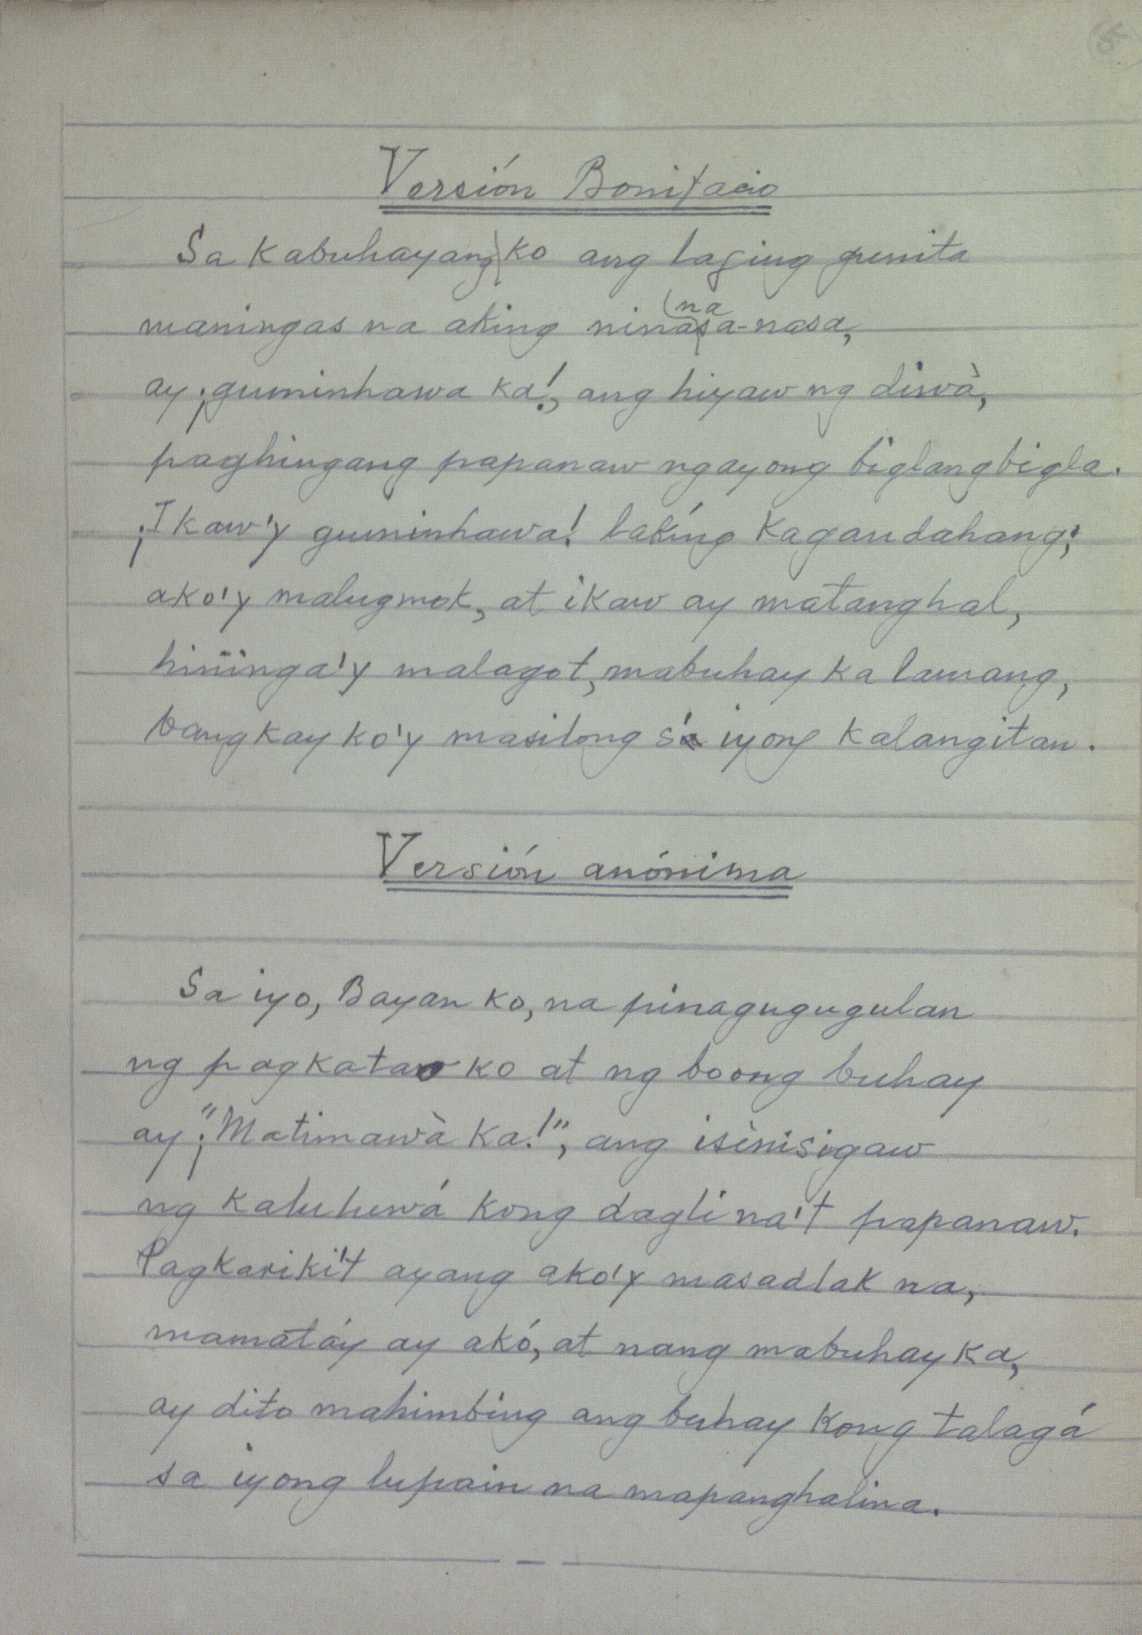 65
Versión Bonifacio
Sa kabuhayang ko ang laging gunita
na
maningas na aking ninasa-nasa,
ay ¡guminhawa ka!, ang hiyaw ng diwà,
paghingang papanaw ngayong biglangbigla.
¡Ikaw'y guminhawa! laking kagandahang;
ako'y malugmok, at ikaw ay matanghal,
hininga'y malagot, mabuhay ka lamang,
bangkay ko'y masilong sa iyong kalangitan.
Versión anónima
Sa iyo, Bayan ko, na pinagugugulan
ng pagkatao ko at ng boong buhay
ay "¡Matimawà ka!", ang isinisigaw
ng kaluluwá kong dagli na't papanaw.
Pagkariki't ayang ako'y masadlak na,
mamatáy ay akó, at nang mabuhay ka,
ay dito mahimbing ang buhay kong talagá
sa iyong lupain na mapanghalina.